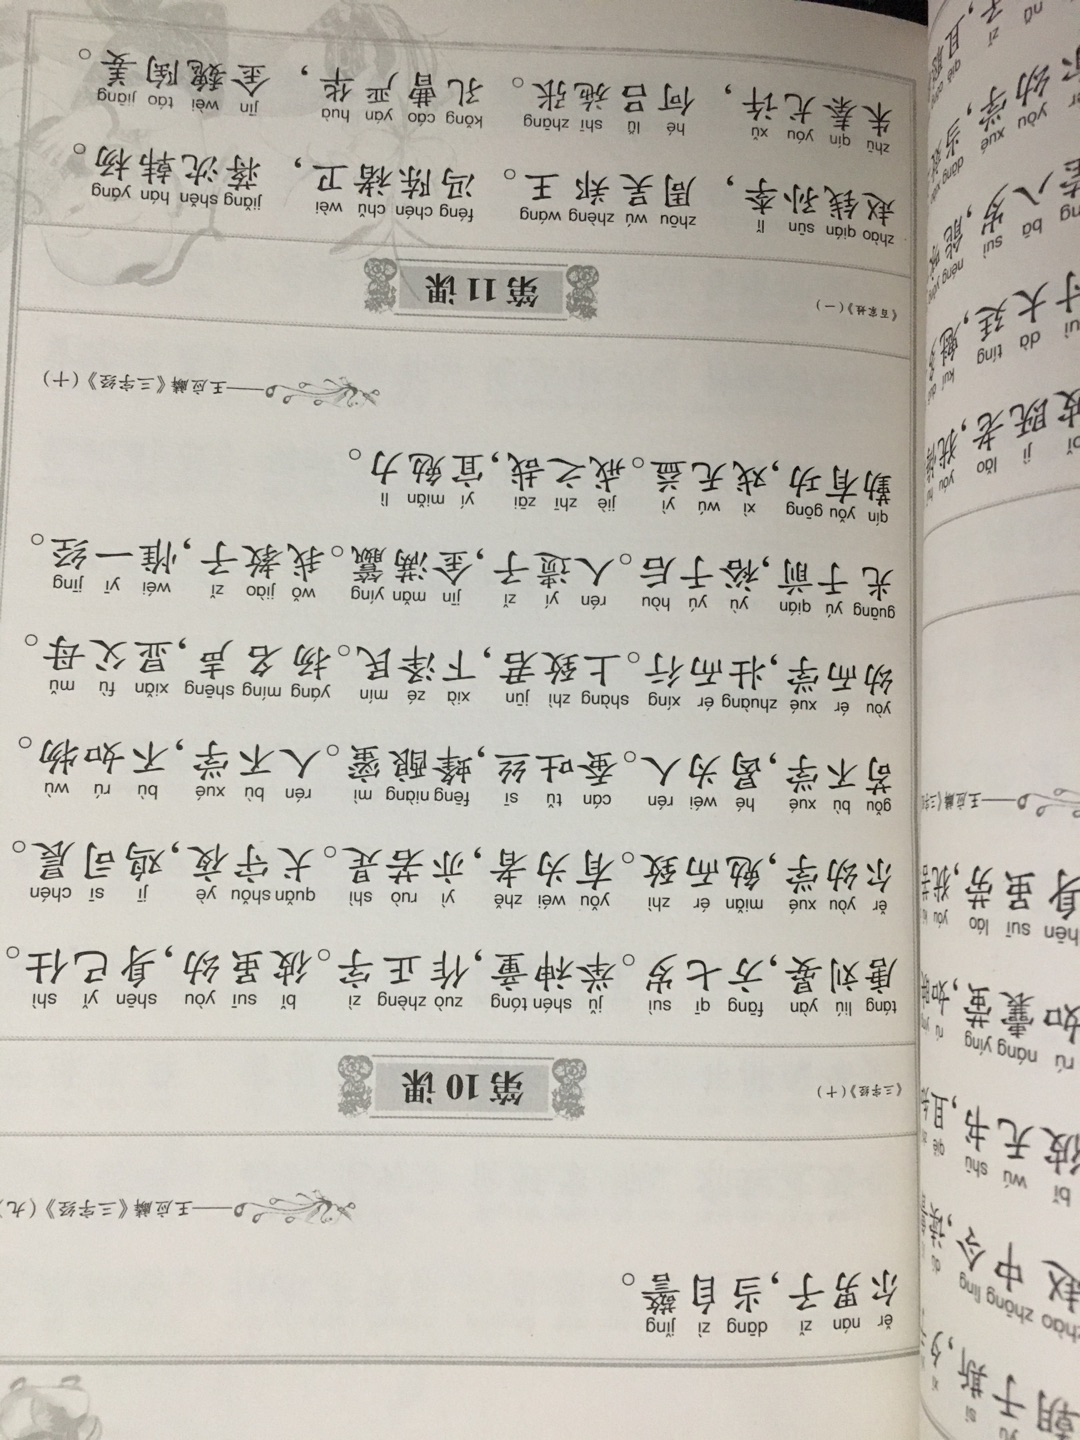 sī
于斯,夕
zhōng lìng dú
赵中令,读
bǐ wú shū qiě
彼无书,且
rú náng yíng rú
如囊萤,如
suī láo yóu
身虽劳,犹
——王应麟《三字
bǐ jì lǎo yóu
彼既老,犹
dà tíng kuí
对大廷,魁
bā suì néng
八岁,能
yòu xué dāng
尔幼学,当
nǚ zǐ qiě
子,且
ěr nán zǐ dāng zì jǐng
尔男子,当自警。
——王应麟《三字经》(九)
《三字经》(十)
第10课
táng liú yàn fāng qī suì jǔ shén tóng zuò zhèng zì bǐ suī yòu shēn yǐ shì
唐刘晏,方七岁。举神童,作正字。彼虽幼,身已仕。
ěr yòu xué miǎn ér zhì yǒu wéi zhě yì ruò shì quǎn shǒu yè jī sī chén
尔幼学,勉而致。有为者,亦若是。犬守夜,鸡司晨。
gǒu bù xué hé wéi rén cán tǔ sī fēng niàng mì rén bù xué bù rú wù
苟不学,曷为人。蚕吐丝,蜂酿蜜。人不学,不如物。
yòu ér xué zhuàng ér xíng shàng zhì jūn xià zé mín yáng míng shēng xiǎn fù mǔ
幼而学,壮而行。上致君,下泽民。扬名声,显父母。
guāng yú qián yù yú hòu rén yí zǐ jīn mǎn yíng wǒ jiào zǐ wéi yī jīng
光于前,裕于后。人遗子,金满籯。我教子,惟一经。
qín yǒu gōng xì wú yì jiè zhī zāi yí miǎn lì
勤有功,戏无益。戒之哉,宜勉力。
——王应麟《三字经》(十)
《百家姓》(一)
第11课
zhào qián sūn lǐ zhōu wú zhèng wáng féng chén chǔ wèi jiǎng shěn hán yáng
赵钱孙李,周吴郑王。冯陈褚卫,蒋沈韩杨。
zhū qín yóu xǔ hé lǚ shī zhāng kǒng cáo yán huà jīn wèi táo jiāng
朱秦尤许,何吕施张。孔曹严华,金魏陶姜。